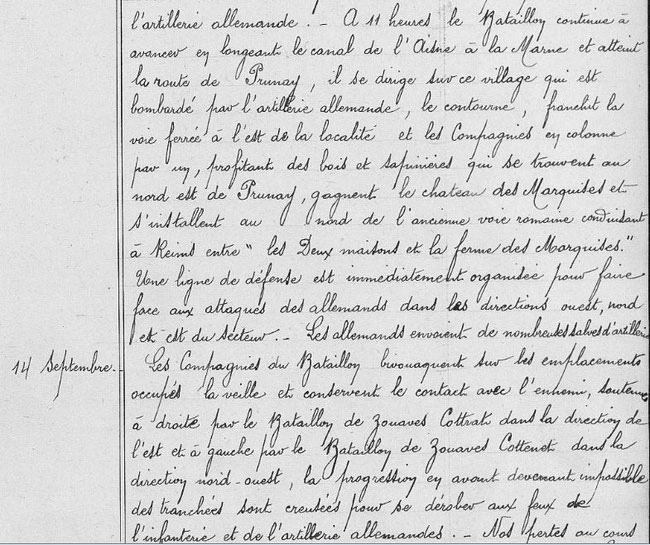 l'artillerie allemande. - A 11 heures le Bataillon continue à
avancer en longeant le canal de l'Aisne à la Marne et atteint
la route de Prunay, il se dirige sur ce village qui est
bombardé par l'artillerie allemande, le contourne, franchit la
voie ferrée à l'est de la localité et les Compagnies en colonne
par un, profitant des bois et sapinières qui se trouvent au
nord est de Prunay, gagnent le chateau des Marquises et
s'installent au nord de l'ancienne voie romaine conduisant
à Reims entre "les Deux maisons et la ferme des Marquises."
Une ligne de défense est immédiatement organisée pour faire
face aux attaques des allemands dans les directions ouest, nord
et est du secteur. - Les allemands envoient de nombreuses salves d'artillerie
14 Septembre. - Les Compagnies du Bataillon bivouaquent sur les emplacements
occupés la veille et conservent le contact avec l'ennemi, soutenues
à droite par le Bataillon de Zouaves Cottrat dans la direction de
l'est et à gauche par le Bataillon de Zouaves Cottenet dans la
direction nord-ouest, la progression en avant devenant impossible
des tranchées sont creusées pour se dérober aux feux de
l'infanterie et de l'artillerie allemandes. - Nos pertes au cours